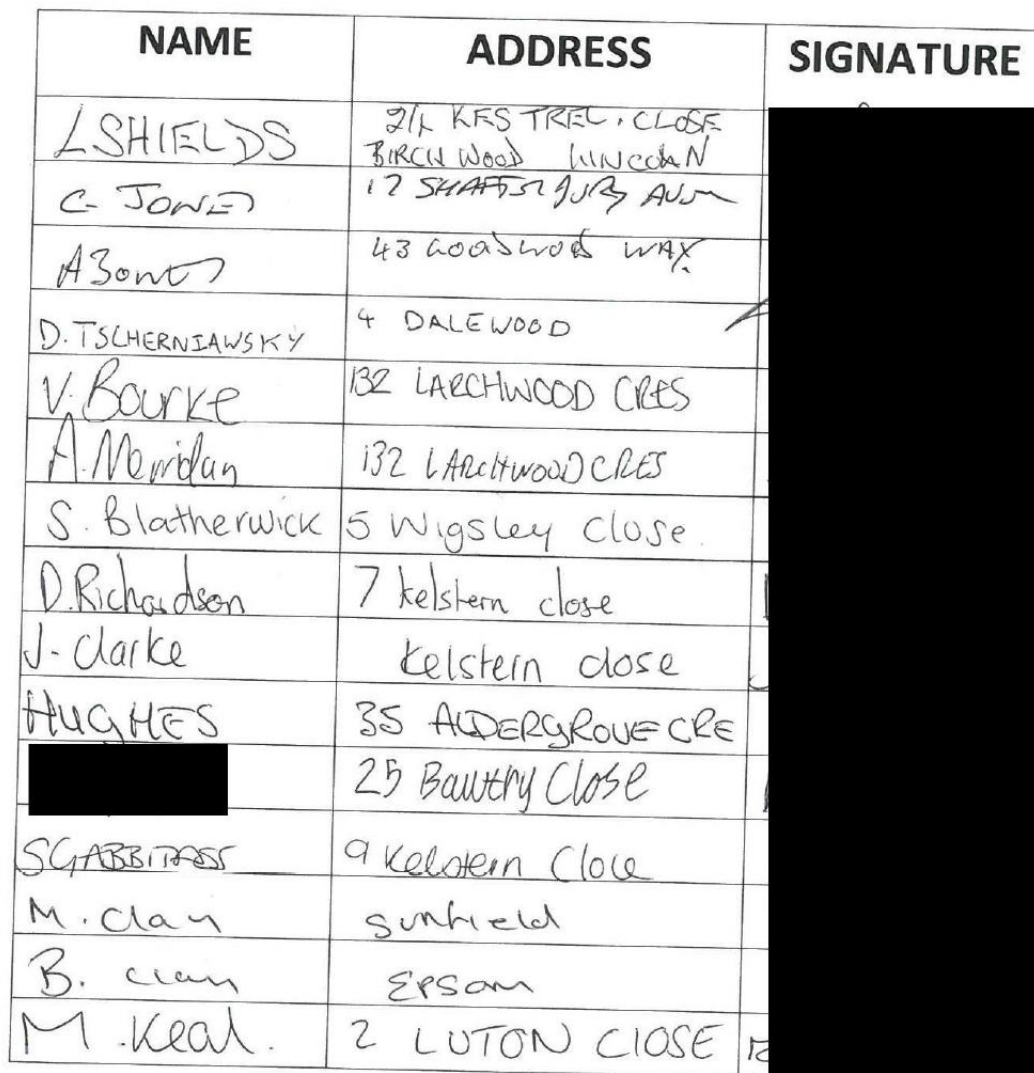 NAME ADDRESS SIGNATURE
L SHIELDS 211 KESTREL CLOSE
BIRCHWOOD LINCOLN
C- JONES 17 SHAFTESBURY AVE
A JONES 43 WAY
D. TSCHERNIAWSKY 4 DALEWOOD
V. Bourke 132 LARCHWOOD CRES
A. Merridan 132 LARCHWOOD CRES
S. Blatherwick 5 Wigsley Close.
D. Richardson 7 kelstern close
J- Clarke kelstern close
HUGHES 35 ALDERGROVE CRE
25 Bawtry Close
S GABBITASS 9 Kelstern Close
M. Clay sunfield
B. Clay EPSom
M. Keal. 2 LUTON ClOSE